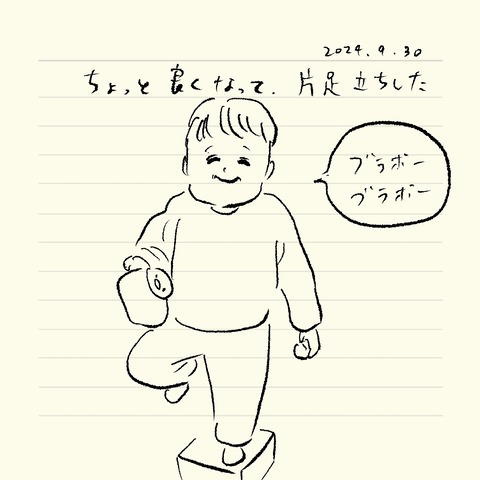 2024.9.30
ちょっと良くなって、片足立ちした
ブラボー
ブラボー